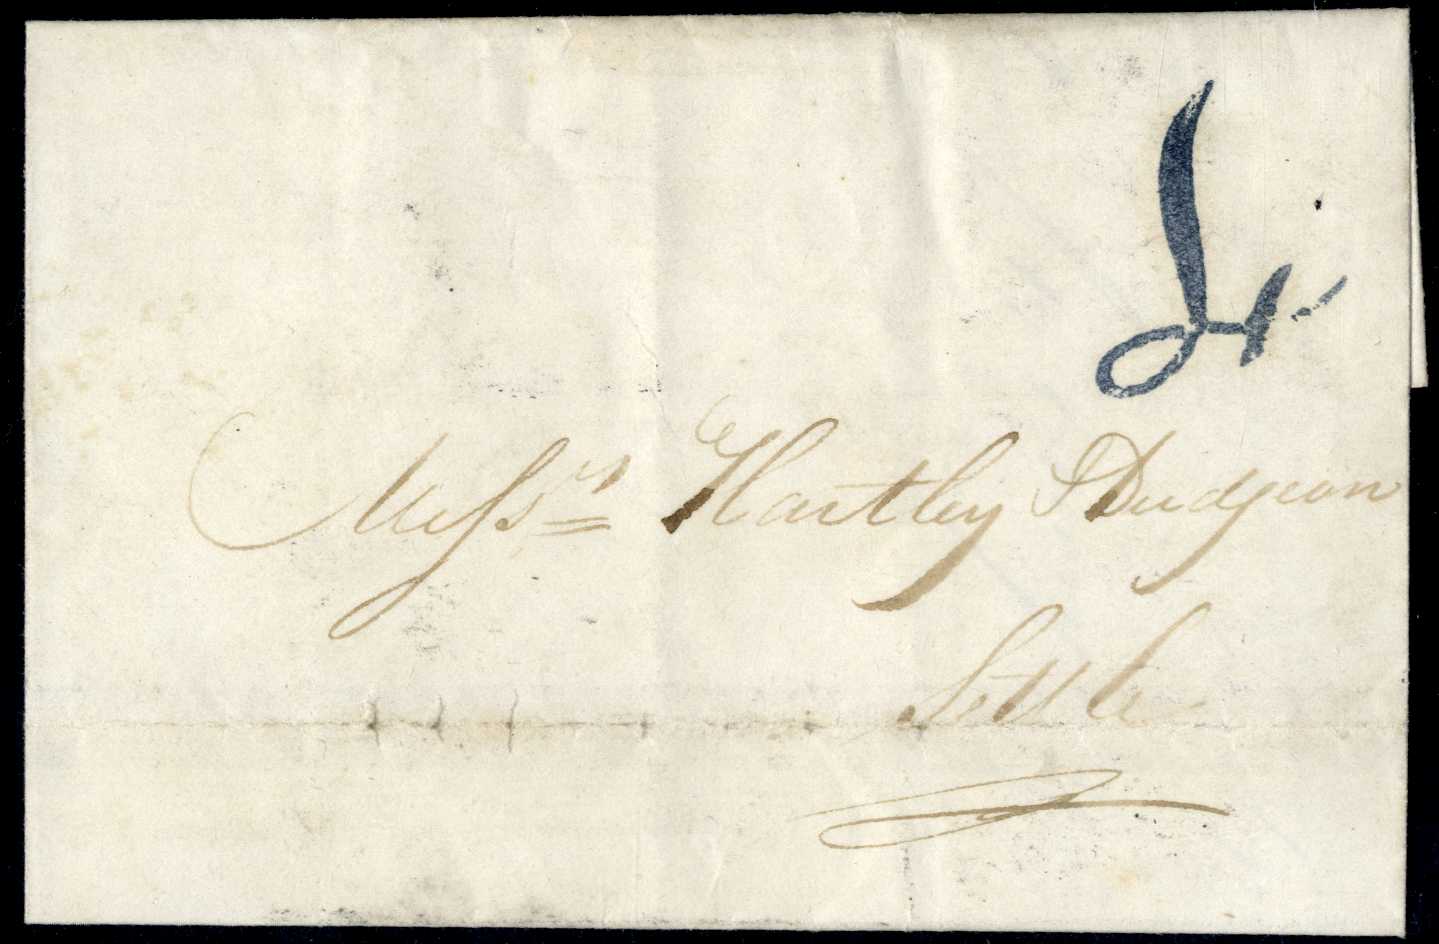 Messrs Hartley & Dudgeon
Settle